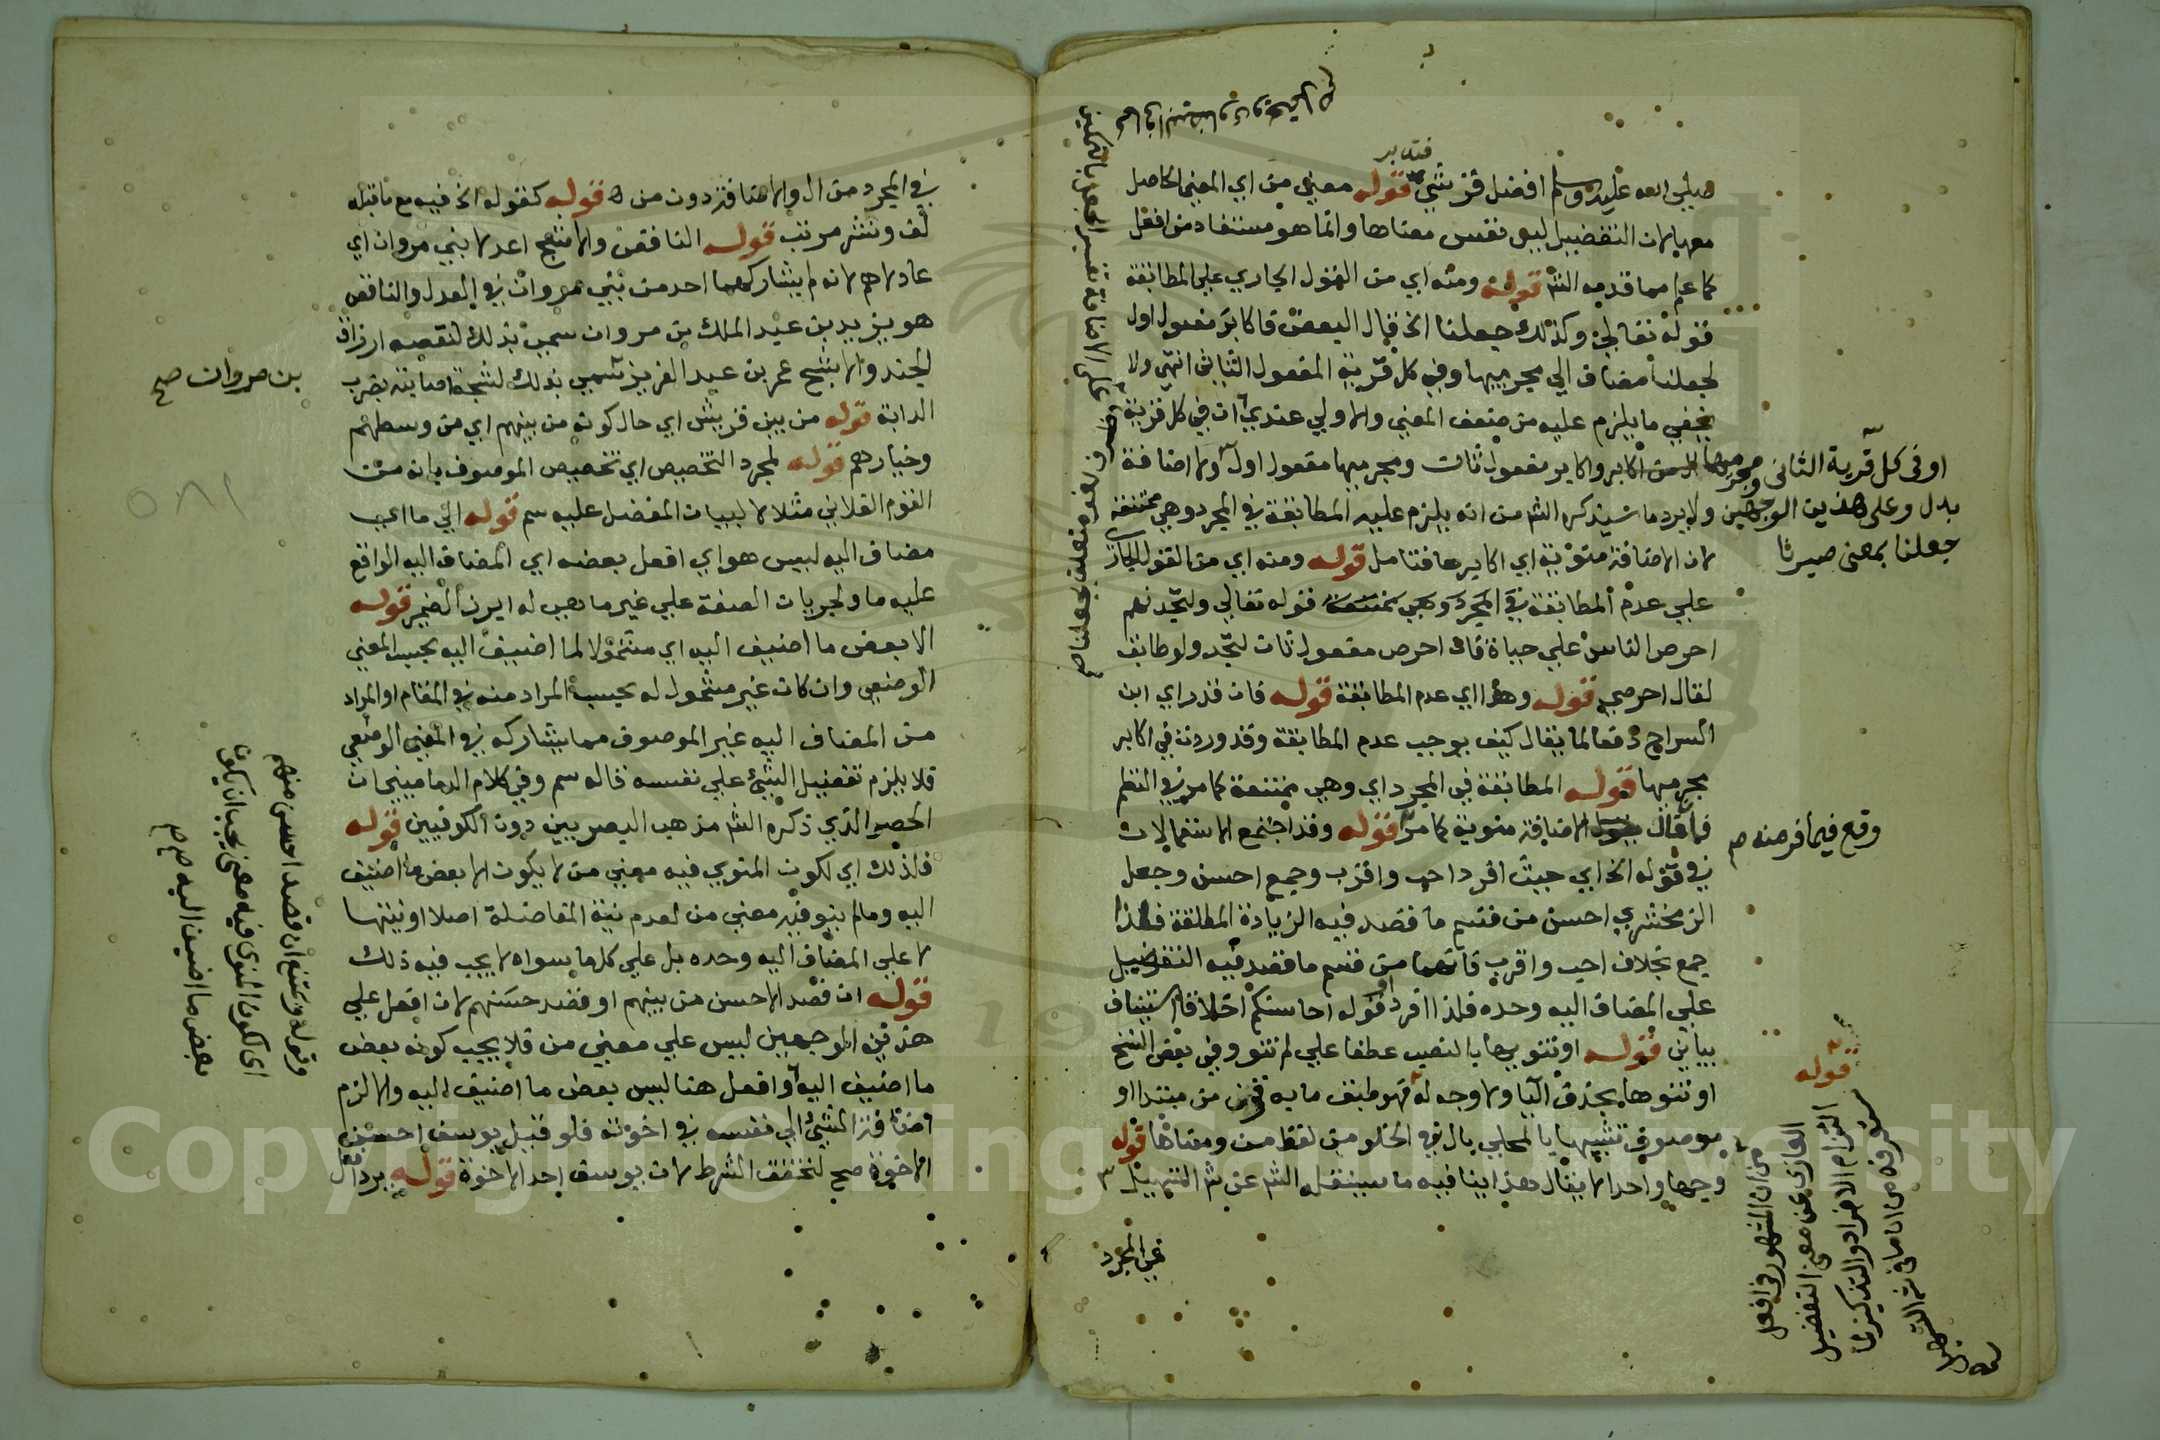 صلى الله عليه وسلم افضل قريش قوله معنى من اي المعنى الحاصل
فتدبر
معها لان التفضيل ليس نفس معناها وانما هو مستفاد من افعل
كما علم مما قدمه الش قوله ومنه اي من القول الجاري على المطابقة
قوله تعالى وكذلك جعلنا الخ قال البعض فاكابر مفعول اول
لجعلنا مضاف الى مجرميها وفي كل قرية المفعول الثاني انتهى ولا
يخفى ما يلزم عليه من ضعف المعنى والاولى عندي ان في كل قرية
اكابر واكابر مفعول ثان ومجرميها مفعول اول ولا اضافة
ولا يرد ما سيذكره الش من انه يلزم عليه المطابقة في المجرد وهي ممتنعة
لان الاضافة منوية اي اكابرها فتامل قوله ومنه اي من القول الجاري
على عدم المطابقة في المجرد وهي ممتنعة قوله تعالى ولتجدنهم
احرص الناس على حياة فان احرص مفعول ثان لتجد ولو طابق
لقال احرصي قوله وهذا اي عدم المطابقة قوله فان قدر اي ابن
السراج دفعا لما يقال كيف يوجب عدم المطابقة وقد وردت في اكابر
مجرميها قوله المطابقة في المجرد اي وهي ممتنعة كما مر في النظم
فان قال الاضافة منوية كما مر قوله وقد اجتمع الاستعمالان
في قوله الخ اي حيث افرد احب واقرب وجمع احسن وجعل
الزمخشري احسن من قسم ما قصد فيه الزيادة المطلقة فلذا
جمع بخلاف احب واقرب فانهما من قسم ما قصد فيه التفضيل
على المضاف اليه وحده فلذا افرد او قوله احاسنكم اخلاقا استئناف
بياني قوله او تنويها بالنصب عطفا على لم تنو وفي بعض النسخ
او تنوها بحذف اليا ولا وجه له قهو طبق ما به قرن من مبتدا او
موصوف تشبيها بالمحلى بال في الخلو من لفظ من ومعناها قوله
وجها واحدا لا يقال هذا ينافيه ما سينقله الش عن ش التسهيل
في المجرد
او في كل قرية الثاني ومجرميها
بدل وعلى هذين الوجهين
جعلنا بمعنى صيرنا
وقع فيما فر منه صح
قوله
من ان المشهور في افعل
العاري عن معنى التفضيل
التزام الافراد والتذكير
في المجرد من ال والاضافة دون من ه قوله كقوله الخ فيه مع ما قبله
لف ونشر مرتب قوله الناقص والاشج اعدلا بني مروان اي
عادلاهم لانه لم يشاركهما احد من بني مروان في العدل والناقص
هو يزيد بن عبد الملك بن مروان سمي بذلك لنقصه ارزاق
الجند والاشج عمر بن عبد العزيز سمي بذلك لشجة اصابته بضرب
الدابة قوله من بين قريش اي حال كونه من بينهم اي من وسطهم
وخيارهم قوله لمجرد التخصيص اي تخصيص الموصوف بانه من
القوم الفلاني مثلا لا لبيان المفضل عليه سم قوله الى ما اي
مضاف اليه ليس هو اي افعل بعضه اي المضاف اليه الواقع
عليه ما ولجريان الصفة على غير ما هي له ابرز الضمير قوله
الا بعض ما اضيف اليه اي مشمولا لما اضيف اليه بحسب المعنى
الوضعي وان كان غير مشمول له بحسب المراد منه في المقام او المراد
من المضاف اليه غير الموصوف مما يشاركه في المعنى الوضعي
فلا يلزم تفضيل الشيئ على نفسه قاله سم وفي كلام الدماميني ان
الحصر الذي ذكره الش مذهب البصريين دون الكوفيين قوله
فلذلك اي لكون المنوي فيه معنى من لا يكون الا بعض ما اضيف
اليه وما لم ينو فيه معنى من لعدم نية المفاضلة اصلا او نيتها
لا على المضاف اليه وحده بل على كل ما سواه لا يجب فيه ذلك
قوله ان قصد الاحسن من بينهم او قصد حسنهم لان افعل على
هذين الوجهين ليس على معنى من فلا يجب كونه بعض
ما اضيف اليه وافعل هنا ليس بعض ما اضيف اليه والا لزم
اضافة الشيئ الى نفسه في اخوته فلو قيل يوسف احسن
الاخوة صح لتحقق الشرط لان يوسف احد الاخوة قوله يرد ال
بن مروان صح
وقوله ويمتنع ان قصد احسن منهم
اي لكون المنوي فيه معنى يجب ان يكون
بعض ما اضيف اليه صح